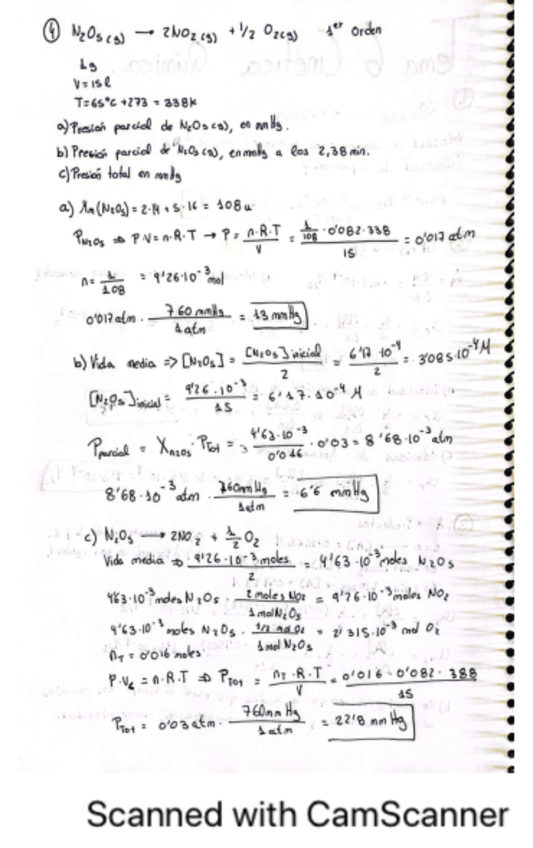 ④ N₂O₅(g) → 2NO₂(g) + 1/2 O₂(g) 1er Orden
1g
V = 15l
T = 65ºC + 273 = 338k
a) Presión parcial de N₂O₅(g), en mmHg.
b) Presión parcial de N₂O₅(g), en mmHg a los 2,38 min.
c) Presión total en mmHg
a) Mm(N₂O₅) = 2·14 + 5·16 = 108 u
P N₂O₅ ⇒ P·V = n·R·T → P = n·R·T / V = 1/108 · 0'082·338 / 15 = 0'017 atm
n = 1/108 = 9'26·10⁻³ mol
0'017 atm · 760 mmHg / 1 atm = 13 mmHg
b) Vida media => [N₂O₅] = [N₂O₅] inicial / 2 = 6'17·10⁻⁴ / 2 = 3'085·10⁻⁴ M
[N₂O₅] inicial = 9'26·10⁻³ / 15 = 6'17·10⁻⁴ M
Pparcial = X N₂O₅ · PTot = 4'63·10⁻³ / 0'016 · 0'03 = 8'68·10⁻³ atm
8'68·10⁻³ atm · 760mmHg / 1 atm = 6'6 mmHg
c) N₂O₅ → 2NO₂ + 1/2 O₂
Vida media ⇒ 9'26·10⁻³ moles / 2 = 4'63·10⁻³ moles N₂O₅
4'63·10⁻³ moles N₂O₅ · 2 moles NO₂ / 1 mol N₂O₅ = 9'26·10⁻³ moles NO₂
4'63·10⁻³ moles N₂O₅ · 1/2 mol O₂ / 1 mol N₂O₅ = 2'315·10⁻³ mol O₂
nT = 0'016 moles
P·V = n·R·T ⇒ PTot = nT·R·T / V = 0'016·0'082·388 / 15
PTot = 0'03 atm · 760mm Hg / 1 atm = 22'8 mm Hg
Scanned with CamScanner